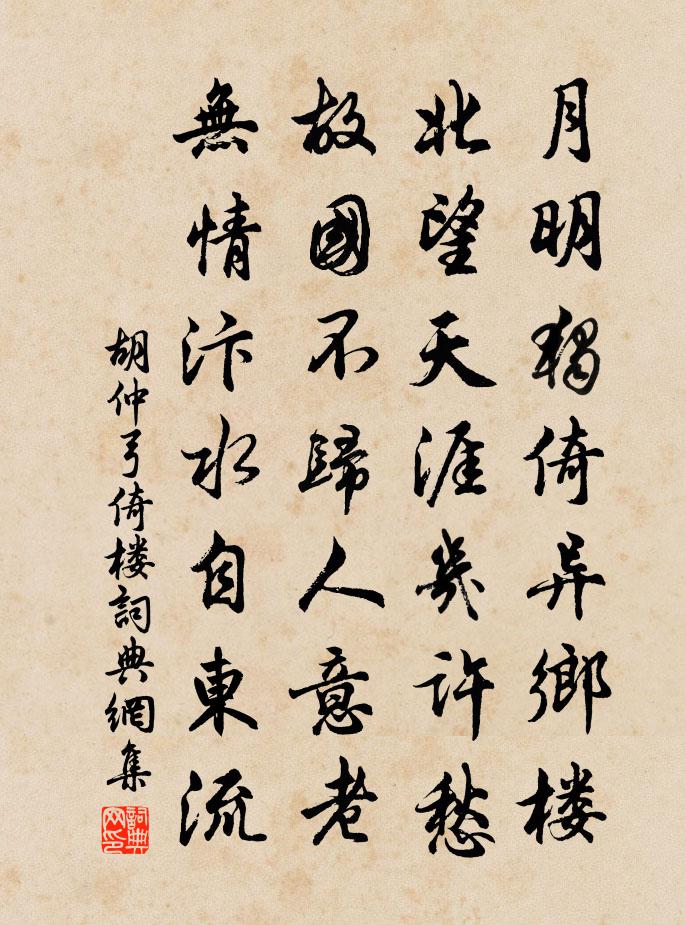 月明獨倚异鄉楼
北望天涯幾許愁
故國不歸人意老
無情汴水自東流
胡仲弓倚楼詞典網集
詞典网印